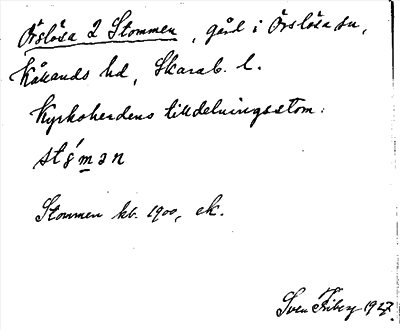 Örslösa 2 Stommen, gård i Örslösa sn,
Kållands hd, Skarab. l.
Kyrkoherdens tilldelningsstom:
Stommen kb. 1900, ek.
Sven Friberg 1927.